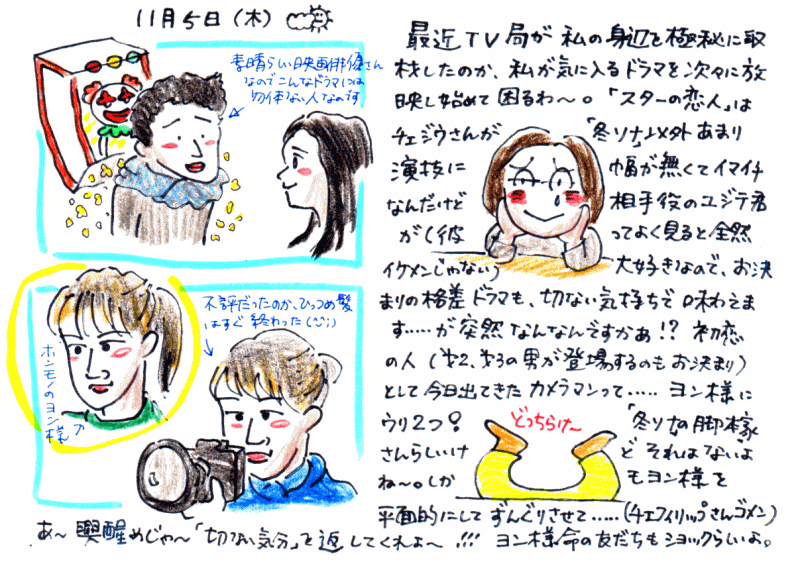 11月5日(木)
素晴らしい映画俳優さん
なのでこんなドラマには
勿体ない人なのです
不評だったのか、ひっつめ髪
はすぐ終わった(^^;)
ホンモノのヨン様
最近TV局が私の身辺を極秘に取
材したのか、私が気に入るドラマを次々に放
映し始めて困るわ～。「スターの恋人」は
チェジウさんが「冬ソナ」以外あまり
演技に幅が無くてイマイチ
なんだけど相手役のユジテ君
が(彼ってよく見ると全然
イケメンじゃない)大好きなので、お決
まりの格差ドラマも、切ない気持ちで味わえま
す……が突然なんなんですかあ!?初恋
の人(オ2、オ3の男が登場するのもお決まり)
として今日出てきたカメラマンって……ヨン様に
ウリ2つ?「冬ソナ」の脚本家
さんらしいけどそれはないよ
ね～。しかもヨン様を
平面的にしてずんぐりさせて……(チェフィリップさんゴメン)
どっちらけ～
あ～興醒めじゃ～「切ない気分」を返してくれよ～!!!ヨン様命の友だちもショックらしいよ。